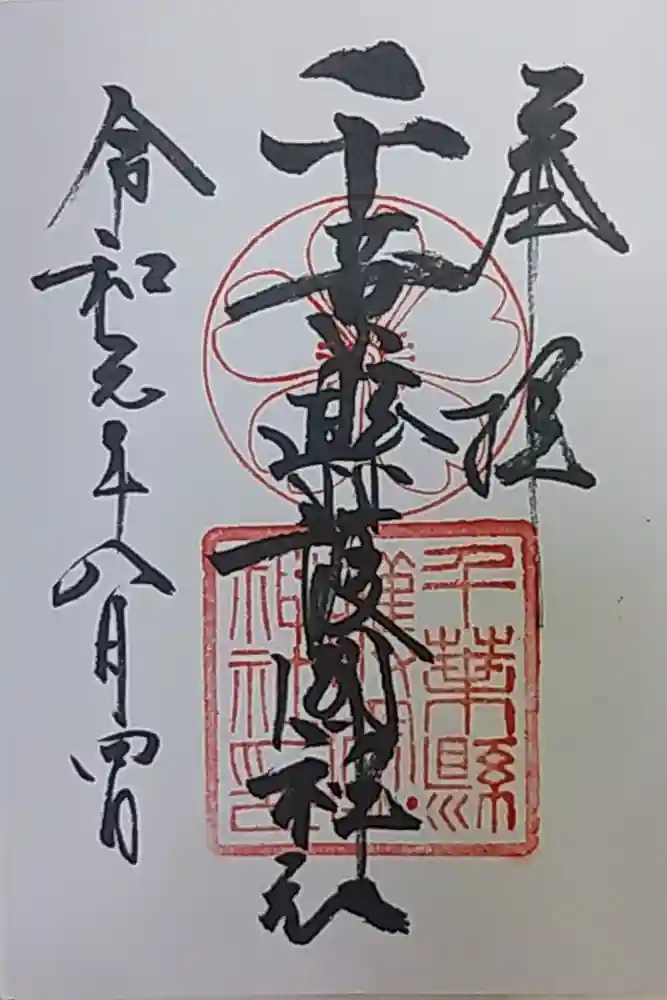 奉拝
千葉縣護國神社
令和元年八月四日
千葉縣
護國
神社印